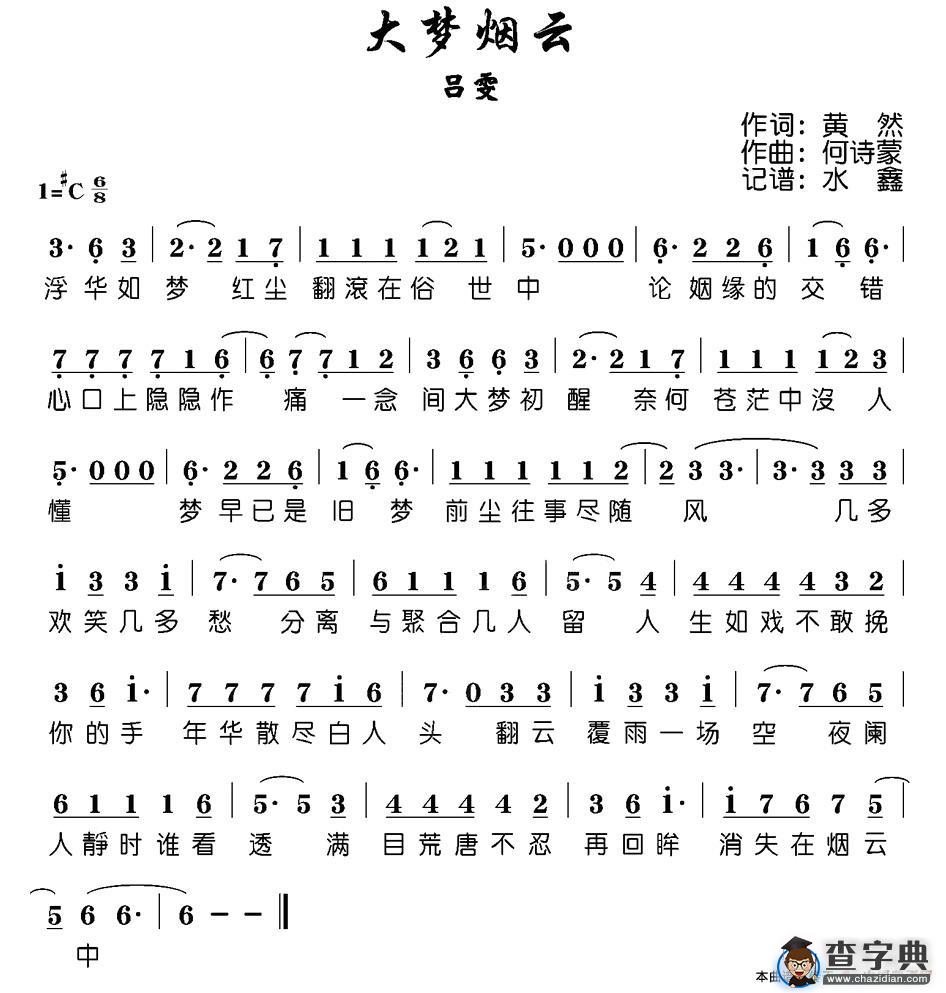 大梦烟云
吕雯
作词：黄 然
作曲：何诗蒙
记谱：水 鑫
1=#C 6/8
3· 6 3 | 2· 2 1 7 | 1 1 1 1 2 1 | 5· 0 0 0 | 6· 2 2 6 | 1 6 6· |
浮华如梦 红尘翻滚在俗世中 论姻缘的交错
7 7 7 7 1 6 | 6 7 7 1 2 | 3 6 6 3 | 2· 2 1 7 | 1 1 1 1 2 3 |
心口上隐隐作 痛 一念间大梦初醒 奈何苍茫中沒人
5· 0 0 0 | 6· 2 2 6 | 1 6 6· | 1 1 1 1 1 2 | 2 3 3· | 3· 3 3 3 |
懂 梦早已是旧梦 前尘往事尽随 风 几多
i 3 3 i | 7· 7 6 5 | 6 1 1 1 6 | 5· 5 4 | 4 4 4 4 3 2 |
欢笑几多愁 分离与聚合几人留 人生如戏不敢挽
3 6 i· | 7 7 7 7 i 6 | 7· 0 3 3 | i 3 3 i | 7· 7 6 5 |
你的手 年华散尽白人头 翻云覆雨一场空 夜阑
6 1 1 1 6 | 5· 5 3 | 4 4 4 4 2 | 3 6 i· | i 7 6 7 5 |
人靜时谁看透 满目荒唐不忍再回眸 消失在烟云
5 6 6· | 6 – – ‖
中
本曲谱
查字典
www.chazidian.com